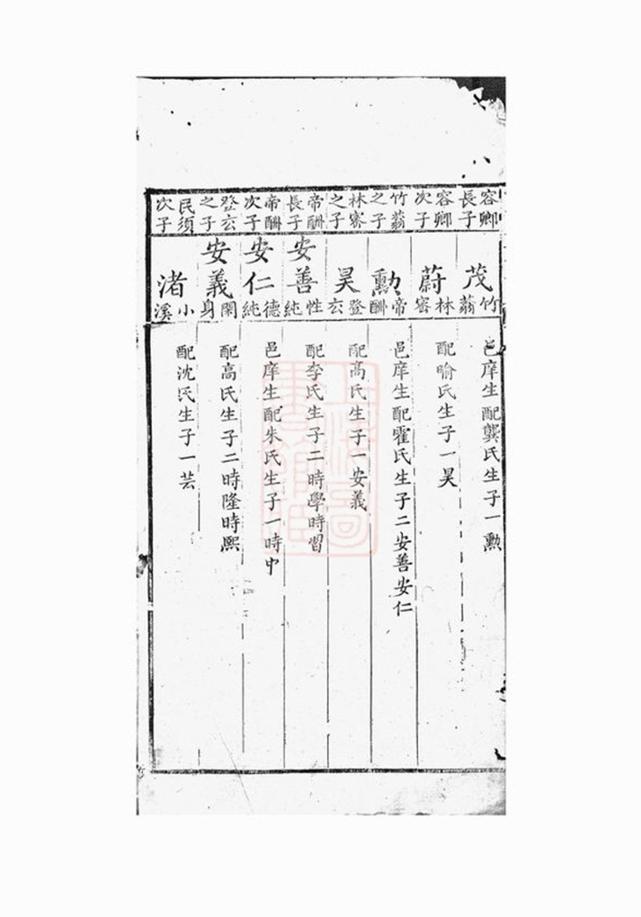 容卿長子
茂
竹翁
邑庠生配龔氏生子一勲
容卿次子
蔚
林
配喻氏生子一昊
竹翁之子
勲
帝酬
邑庠生配霍氏生子二安善安仁
林之子
昊
登玄
配高氏生子一安義
帝酬長子
安善
性純
配李氏生子二時學時習
帝酬次子
安仁
德純
邑庠生配朱氏生子一時中
登玄之子
安義
閑身
配高氏生子二時隆時熙
民須次子
渚
小溪
配沈氏生子一芸
上海圖
書館藏